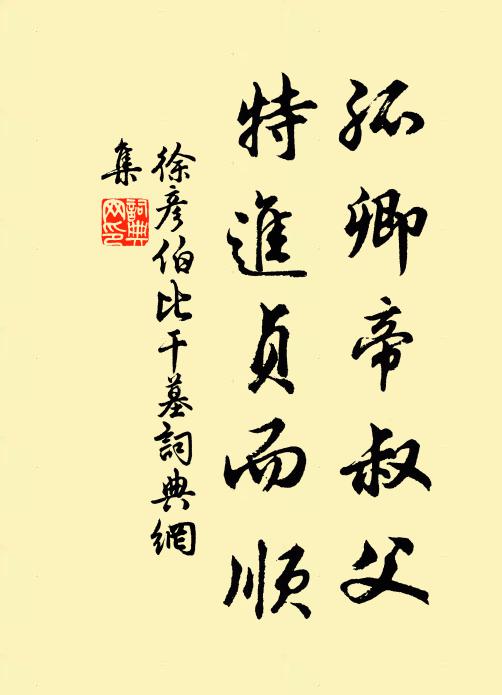 孤卿帝叔父
特進貞而順
徐彥伯比干墓詞典網
集
詞典
网印